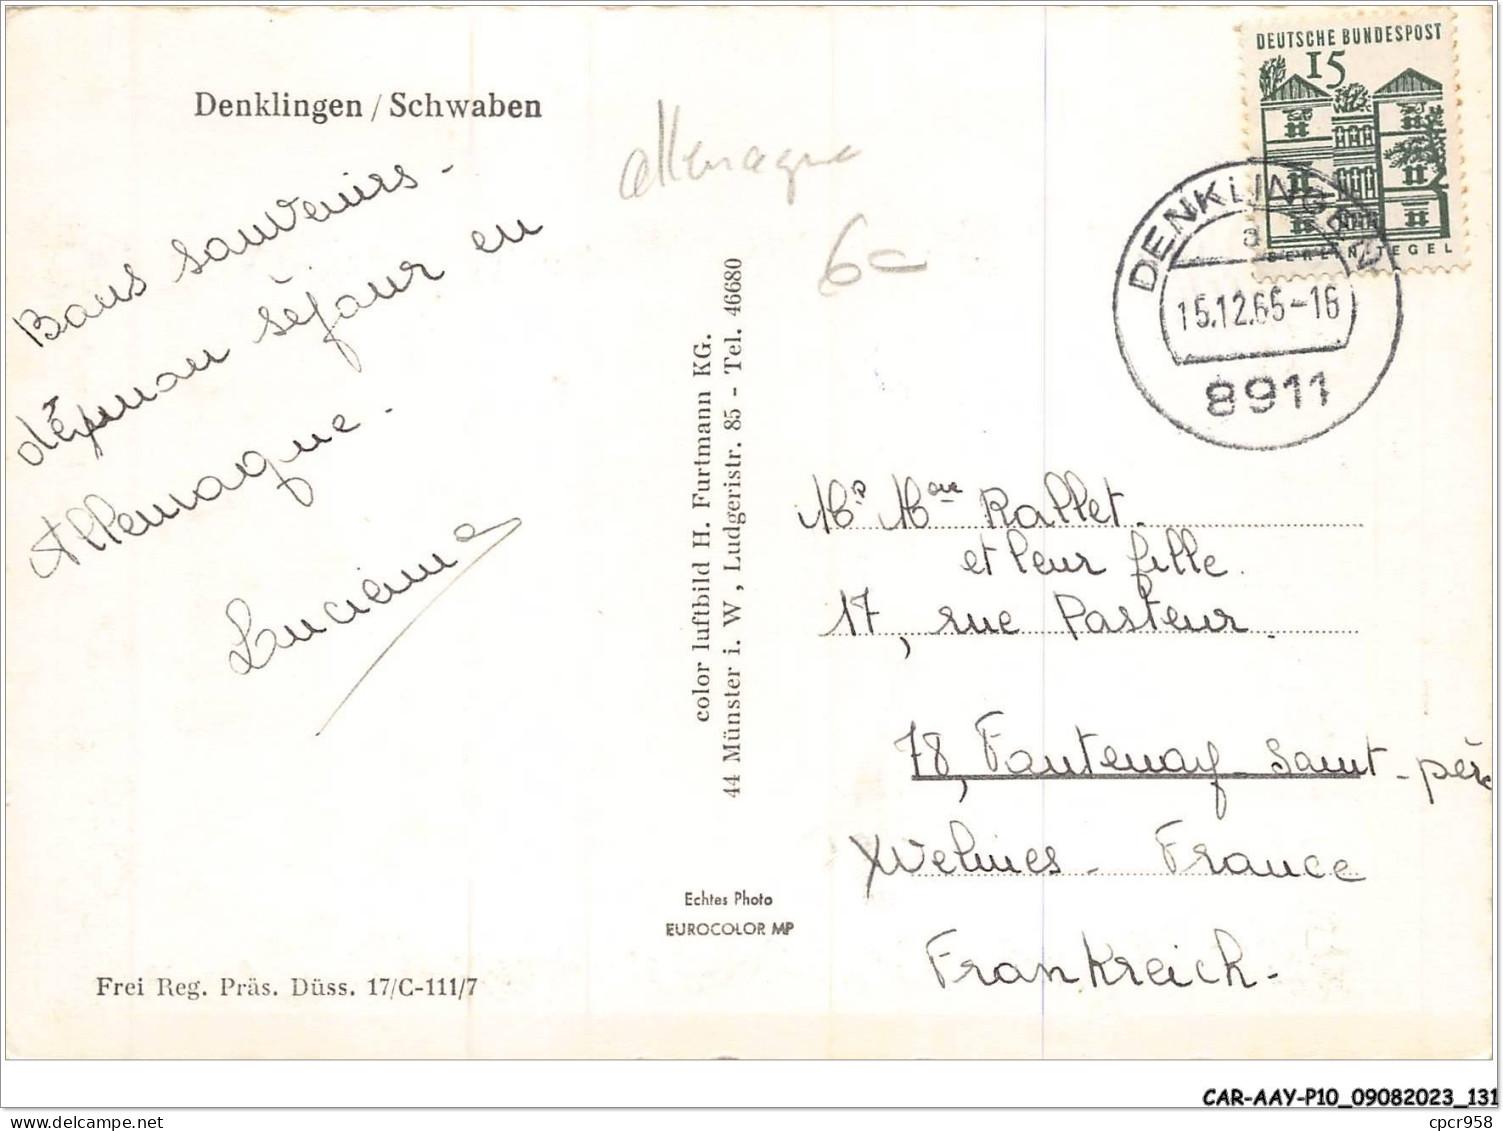 Denklingen / Schwaben
Bons souvenirs -
de mon séjour en
Allemagne -
Lucienne
Frei Reg. Präs. Düss. 17/C-111/7
allemagne
6c
color luftbild H. Furtmann KG.
44 Münster i. W., Ludgeristr. 85 - Tel. 46680
Echtes Photo
EUROCOLOR MP
DEUTSCHE BUNDESPOST
15
BERLIN/TEGEL
DENKLINGEN
a
15.12.65-16
8911
Mr Mme Rallet.
et leur fille.
17, rue Pasteur.
78, Fontenay-Saint-père
Yvelines - France
Frankreich -
CAR-AAY-P10_09082023_131
https://www.delcampe.net
cpcr958